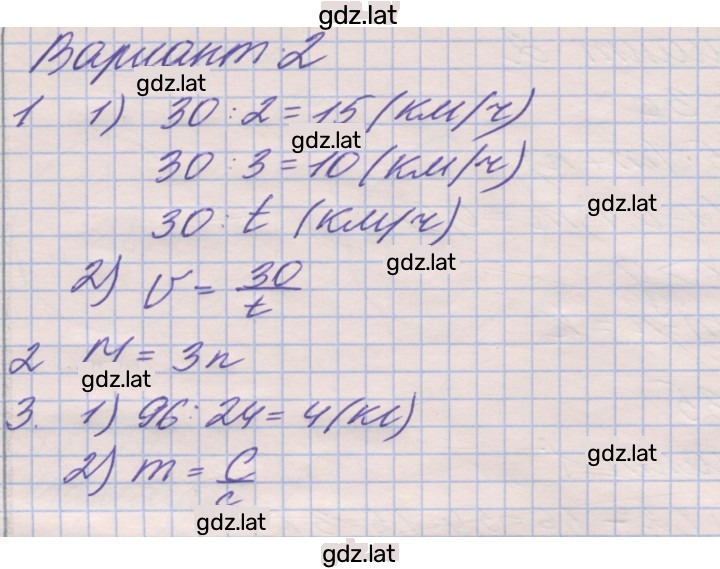 gdz.lat
Вариант 2
gdz.lat
1 1) 30 : 2 = 15 (км/ч)
gdz.lat
30 : 3 = 10 (км/ч)
gdz.lat
30 : t (км/ч)
gdz.lat
2) V = 30/t
2 M = 3n
gdz.lat
3. 1) 96 : 24 = 4 (кг)
gdz.lat
2) m = C/
gdz.lat
gdz.lat